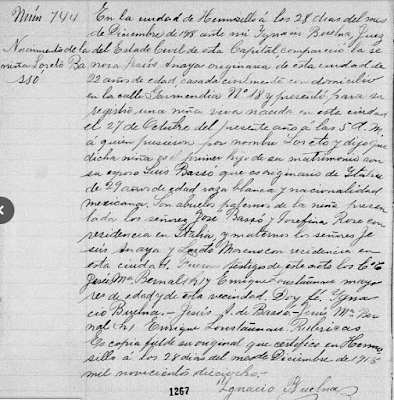 Núm 744
Nacimiento de la
niña Loreto Ba
ssó
En la ciudad de Hermosillo á los 28 dias del mes
de Diciembre de 1918 ante mi Ignacio Buelna, Juez
del Estado Civil de esta Capital, compareció la se
ñora Jesús Anaya originaria de esta ciudad de
22 años de edad, casada civilmente con domicilio
en la calle Garmendia Nº 18 y presentó para su
registro una niña viva nacida en esta ciudad
el 27 de Octubre del presente año á las 5 A.M.
á quien pusieron por nombre Loreto y dijo que
dicha niña es el primer hijo de su matrimonio con
su esposo Luis Basso que es originario de Italia
de 29 años de edad raza blanca y nacionalidad
mexicana. Son abuelos paternos de la niña presen
tada los señores José Bassó y Josefina Rose con
residencia en Italia y maternos los señores Je
sús Anaya y Loreto Moreno con residencia en
esta ciudad. Fueron testigos de este acto los C.C.
José Ma. Bernal h. y Enrique Loustaunau mayo
res de edad y de esta vecindad. Doy fé. Igna
cio Buelna.- Jesús A. de Bassó.- José Ma. Ber
nal h. Enrique Loustaunau. Rubricas
Es copia fiel de su original que certifico en Hermo
sillo á los 28 dias del mes de Diciembre de 1918
mil novecientos dieciocho.-
Ignacio Buelna
1267